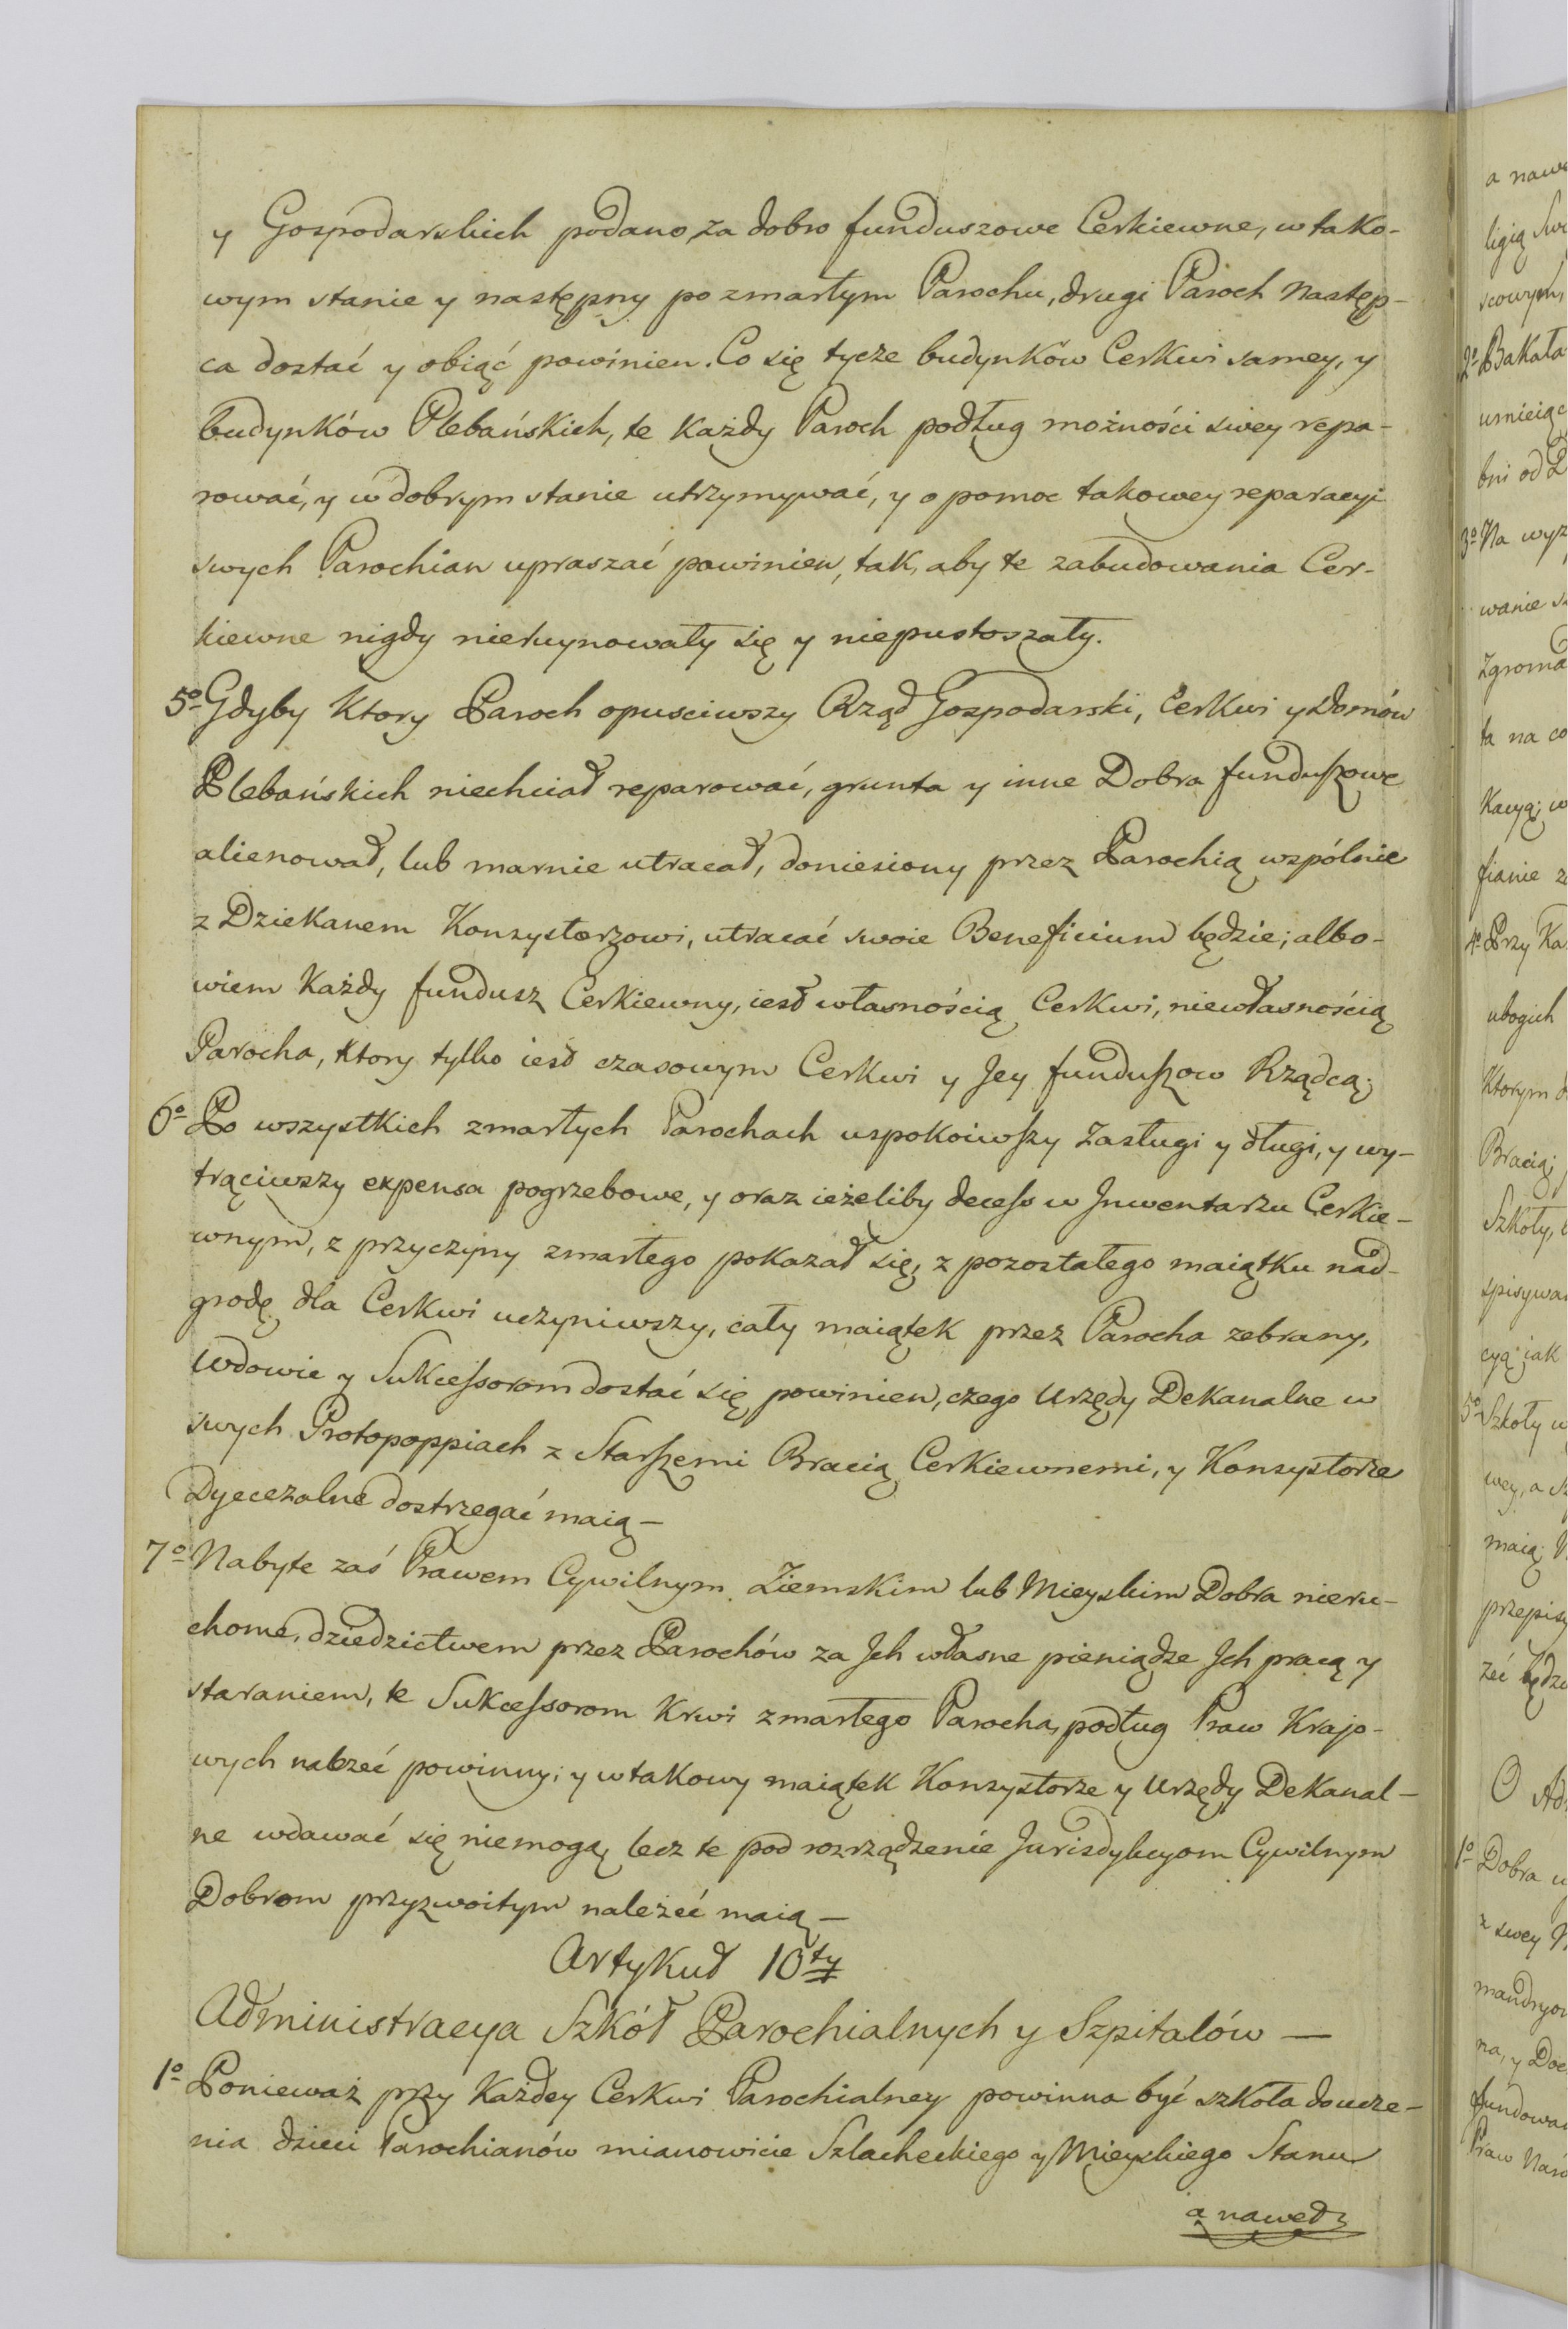 y Gospodarskich podano, za dobro funduszowe Cerkiewne, w tako-
wym stanie y następny po zmarłym Parochu, drugi Paroch następ-
ca dostać y obiąć powinien. Co się tycze budynków Cerkwi samey, y
budynków Plebańskich, te Każdy Paroch podług możności swey repa-
rować, y w dobrym stanie utrzymywać, y o pomoc takowey reparacyi
swych Parochian upraszać powinien, tak, aby te zabudowania Cer-
kiewne nigdy nieruynowały się y niepustoszały.
5º Gdyby Ktory Paroch opusciwszy Rząd Gospodarski, Cerkwi y Domów
Plebańskich niechciał reparować, grunta y inne Dobra funduszowe
alienował, lub marnie utracał, doniesiony przez Parochią wspólnie
z Dziekanem Konzystorzowi, utracać swoie Beneficium będzie; albo-
wiem Każdy fundusz Cerkiewny, iest własnością Cerkwi, niewłasnością
Parocha, Ktory tylko iest czasowym Cerkwi y Jey funduszow Rządcą;
6º Po wszystkich zmarłych Parochach uspokoiwszy Zasługi y długi, y wy-
trąciwszy expensa pogrzebowe, y oraz ieżeliby decess w Jnwentarzu Cerkie-
wnym, z przyczyny zmarłego pokazał się, z pozostałego maiątku nad-
grodę dla Cerkwi uczyniwszy, cały maiątek przez Parocha zebrany,
Wdowie y Sukcessorom dostać się powinien, czego Urzędy DeKanalne w
swych Protopoppiach z Starszemi Bracią Cerkiewnemi, y Konzystorze
Dyecezalne dostrzegać maią —
7º Nabyte zaś Prawem Cywilnym Ziemskim lub Mieyskim Dobra nieru-
chome, dziedzictwem przez Parochów za Jch własne pieniądze Jch pracą y
staraniem, te Sukcessorom Krwi zmarłego Parocha, podług Praw Krajo-
wych należeć powinny; y w takowy maiątek Konzystorze y Urzędy DeKanal-
ne wdawać się niemogą, lecz te pod rozrządzenie Jurisdykcyom Cywilnym
Dobrom przyzwoitym należeć maią —
Artykuł 10ty
Administracya Szkół Parochialnych y Szpitalów —
1º Ponieważ przy Każdey Cerkwi Parochialney powinna być szkoła do ucze-
nia dzieci Parochianów mianowicie Szlacheckiego y Mieyskiego Stanu
a nawet